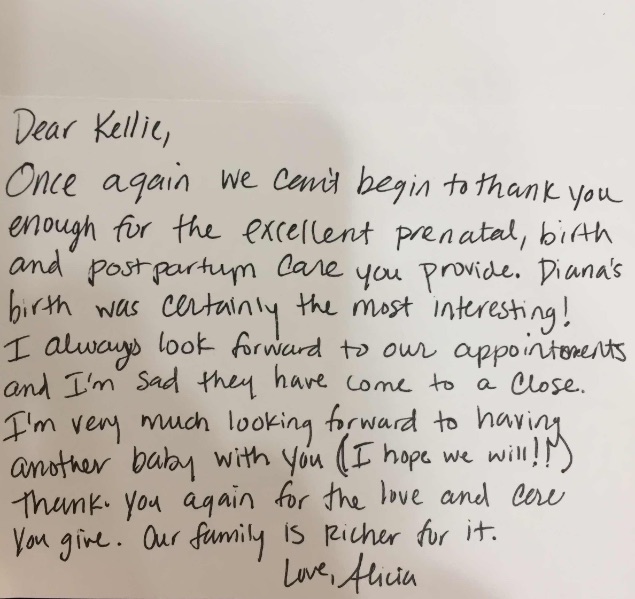 Dear Kellie,
Once again we can't begin to thank you
enough for the excellent prenatal, birth
and postpartum care you provide. Diana's
birth was certainly the most interesting!
I always look forward to our appointments
and I'm sad they have come to a close.
I'm very much looking forward to having
another baby with you (I hope we will!!)
Thank you again for the love and care
you give. Our family is richer for it.
Love, Alicia